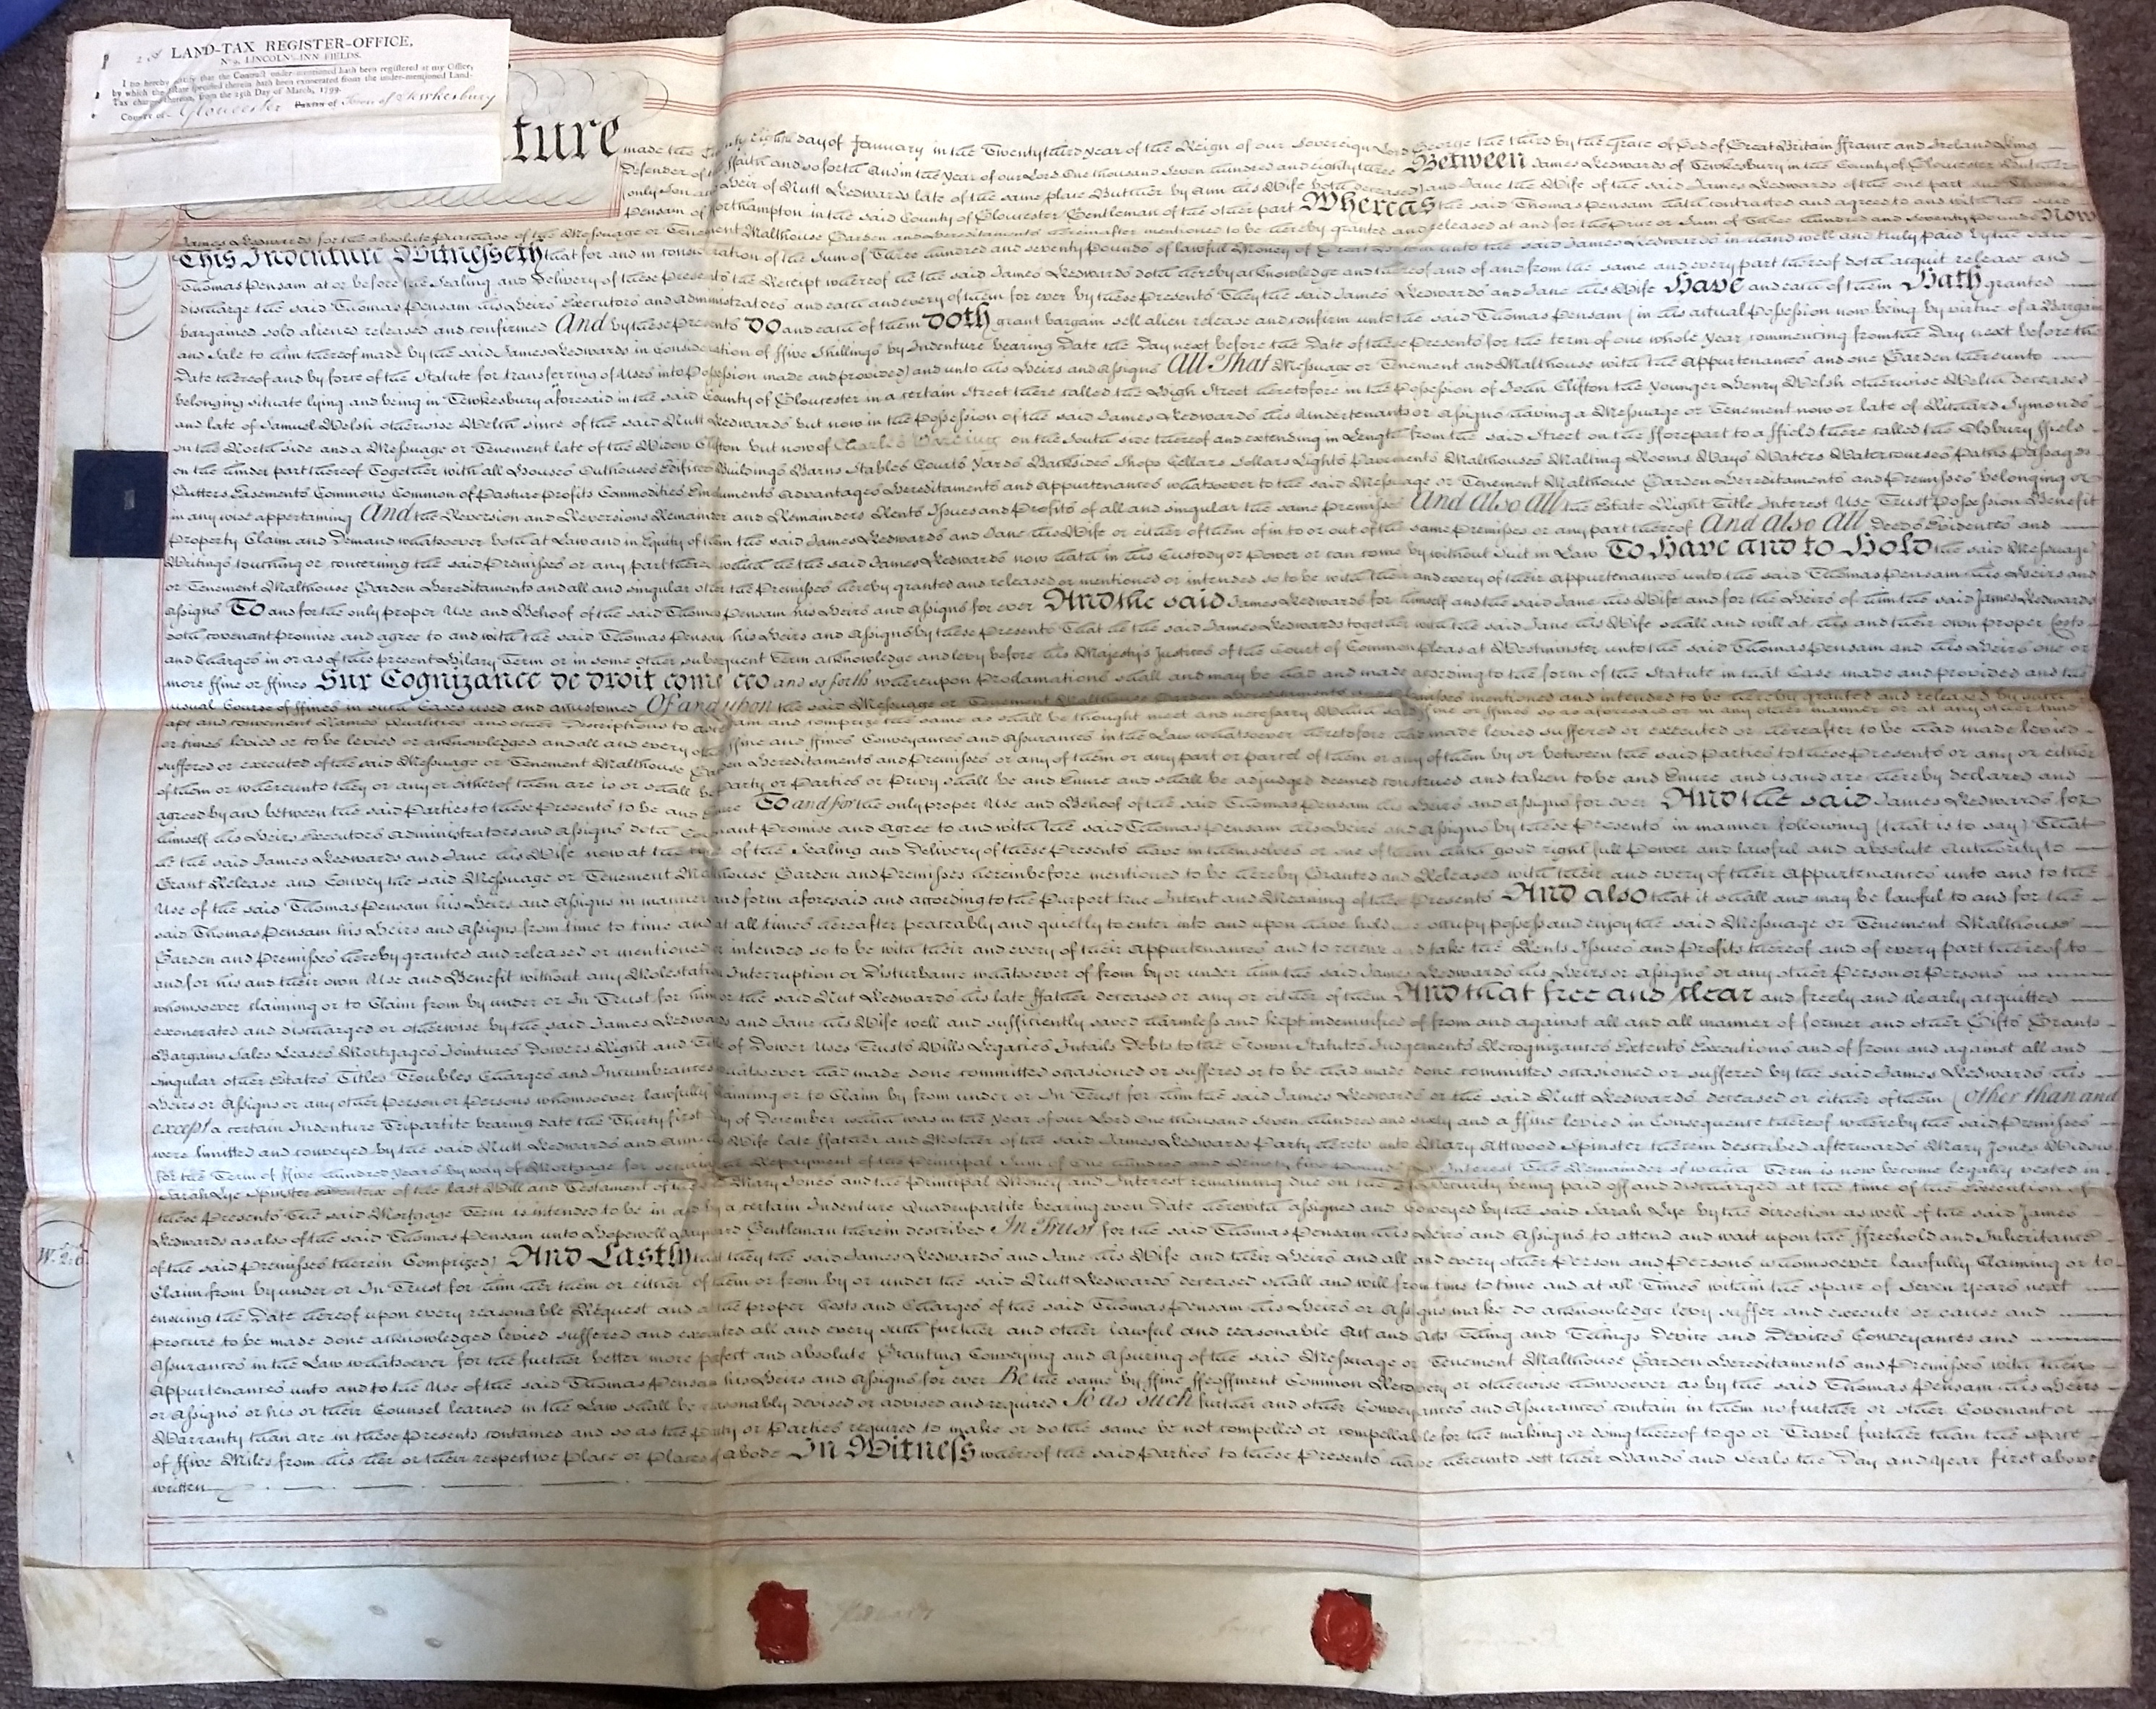 2d LAND-TAX REGISTER-OFFICE,
No 9, LINCOLN'S-INN FIELDS.
I do hereby certify that the Contract under-mentioned hath been registered at my Office,
by which the Estate specified therein hath been exonerated from the under-mentioned Land-
Tax charged thereon, from the 25th Day of March, 1799.
County of Gloucester Parish of Town of Tewkesbury
ture made the day of January in the Twenty third year of the Reign of our Sovereign Lord George the third by the Grace of God of Great Britain ffrance and Ireland King
Defender of the ffaith and so forth And in the Year of our Lord One thousand Seven hundred and eighty three Between James Edwards of Tewkesbury in the County of Gloucester Butcher
only Son and Heir of Nutt Edwards late of the same place Butcher by Ann his Wife both deceased and Jane the Wife of the said James Edwards of the one part and Thomas
Pensam of fforthampton in the said County of Gloucester Gentleman of the other part Whereas the said Thomas Pensam hath contracted and agreed to and with the said
James Edwards for the absolute Purchase of the Messuage or Tenement Malthouse Garden and Hereditaments hereinafter mentioned to be hereby granted and released at and for the Price or Sum of Three hundred and seventy Pounds Now
This Indenture Witnesseth that for and in consideration of the Sum of Three hundred and seventy Pounds of lawful Money of Great Britain unto the said James Edwards in hand well and truly paid by the said
Thomas Pensam at or before the Sealing and Delivery of these Presents the Receipt whereof he the said James Edwards doth hereby acknowledge and thereof and of and from the same and every part thereof doth acquit release and
discharge the said Thomas Pensam his Heirs Executors and administrators and each and every of them for ever by these Presents They the said James Edwards and Jane his Wife Have and each of them Hath granted
bargained sold aliened released and confirmed And by these Presents Do and each of them Doth grant bargain sell alien release and confirm unto the said Thomas Pensam (in his actual Possession now being by virtue of a Bargain
and Sale to him thereof made by the said James Edwards in Consideration of ffive Shillings by Indenture bearing Date the Day next before the Date of these Presents for the term of one whole Year commencing from the Day next before the
Date thereof and by force of the Statute for transferring of Uses into Possession made and provided) and unto his Heirs and Assigns All That Messuage or Tenement and Malthouse with the Appurtenances and one Garden thereunto
belonging situate lying and being in Tewkesbury aforesaid in the said County of Gloucester in a certain Street there called the High Street heretofore in the Possession of John Clifton the Younger Henry Welsh otherwise Welch deceased
and late of Samuel Welsh otherwise Welch since of the said Nutt Edwards but now in the Possession of the said James Edwards his Undertenants or Assigns having a Messuage or Tenement now or late of Richard Symonds
on the North side and a Messuage or Tenement late of the Widow Clifton but now of Charles on the South side thereof and extending in Length from the said Street on the fforepart to a ffield there called the Oldbury ffield
on the hinder part thereof Together with all Houses Outhouses Edifices Buildings Barns Stables Courts Yards Backsides Shops Cellars Sollars Lights Pavements Malthouses Malting Rooms Ways Waters Watercourses Paths Passages
Gutters Easements Commons Common of Pasture Profits Commodities Emoluments Advantages Hereditaments and Appurtenances whatsoever to the said Messuage or Tenement Malthouse Garden Hereditaments and Premisses belonging or
in any wise appertaining And the Reversion and Reversions Remainder and Remainders Rents Issues and Profits of all and singular the same Premisses And also all the Estate Right Title Interest Use Trust Possession Benefit
Property Claim and Demand whatsoever both at Law and in Equity of them the said James Edwards and Jane his Wife or either of them of in to or out of the same Premisses or any part thereof And also All Deeds Evidences and
Writings touching or concerning the said Premisses or any part thereof which he the said James Edwards now hath in his Custody or Power or can come by without Suit in Law To Have and to Hold the said Messuage
or Tenement Malthouse Garden Hereditaments and all and singular other the Premisses hereby granted and released or mentioned or intended so to be with their and every of their Appurtenances unto the said Thomas Pensam his Heirs and
Assigns To and for the only proper Use and Behoof of the said Thomas Pensam his Heirs and Assigns for ever And the said James Edwards for himself and the said Jane his Wife and for the Heirs of him the said James Edwards
doth covenant Promise and agree to and with the said Thomas Pensam his Heirs and Assigns by these Presents That he the said James Edwards together with the said Jane his Wife shall and will at his and their own proper Costs
and Charges in or as of this present Hilary Term or in some other subsequent Term acknowledge and levy before his Majesty's Justices of the Court of Common Pleas at Westminster unto the said Thomas Pensam and his Heirs one or
more ffine or ffines Sur Cognizance de droit come ceo and so forth whereupon Proclamations shall and may be had and made according to the form of the Statute in that Case made and provided and the
usual Course of ffines in such Cases used and accustomed Of and upon the said Messuage or Tenement Malthouse Garden Hereditaments and Premisses mentioned and intended to be hereby granted and released by such
apt and convenient Names Qualities and other Descriptions to ascertain and comprize the same as shall be thought meet and necessary Which said ffine or ffines so as aforesaid or in any other manner or at any other time
or times levied or to be levied or acknowledged and all and every other ffine and ffines Conveyances and Assurances in the Law whatsoever heretofore had made levied suffered or executed or hereafter to be had made levied
suffered or executed of the said Messuage or Tenement Malthouse Garden Hereditaments and Premisses or any of them or any part or parcel of them or any of them by or between the said Parties to these Presents or any or either
of them or whereunto they or any or either of them are is or shall be Party or Parties or Privy shall be and Enure and shall be adjudged deemed construed and taken to be and Enure and is and are hereby declared and
agreed by and between the said Parties to these Presents to be and Enure To and for the only proper Use and Behoof of the said Thomas Pensam his Heirs and Assigns for ever And the said James Edwards for
himself his Heirs Executors Administrators and Assigns doth Covenant Promise and Agree to and with the said Thomas Pensam his Heirs and Assigns by these Presents in manner following (that is to say) That
he the said James Edwards and Jane his Wife now at the time of the Sealing and Delivery of these Presents have in themselves or one of them hath good right full Power and lawful and absolute Authority to
Grant Release and Convey the said Messuage or Tenement Malthouse Garden and Premisses hereinbefore mentioned to be hereby Granted and Released with their and every of their Appurtenances unto and to the
Use of the said Thomas Pensam his Heirs and Assigns in manner and form aforesaid and according to the Purport true Intent and Meaning of these Presents And also that it shall and may be lawful to and for the
said Thomas Pensam his Heirs and Assigns from time to time and at all times hereafter peaceably and quietly to enter into and upon have hold occupy possess and enjoy the said Messuage or Tenement Malthouse
Garden and Premisses hereby granted and released or mentioned or intended so to be with their and every of their Appurtenances and to receive and take the Rents Issues and Profits thereof and of every part thereof to
and for his and their own Use and Benefit without any Molestation Interruption or Disturbance whatsoever of from by or under him the said James Edwards his Heirs or Assigns or any other Person or Persons
whomsoever claiming or to Claim from by under or In Trust for him or the said Nut Edwards his late ffather deceased or any or either of them And that free and clear and freely and clearly acquitted
exonerated and discharged or otherwise by the said James Edwards and Jane his Wife well and sufficiently saved harmless and kept indemnified of from and against all and all manner of former and other Gifts Grants
Bargains Sales Leases Mortgages Jointures Dowers Right and Title of Dower Uses Trusts Wills Legacies Intails Debts to the Crown Statutes Judgements Recognizances Extents Executions and of from and against all and
singular other Estates Titles Troubles Charges and Incumbrances whatsoever had made done committed occasioned or suffered or to be had made done committed occasioned or suffered by the said James Edwards his
Heirs or Assigns or any other Person or Persons whomsoever lawfully claiming or to Claim by from under or In Trust for him the said James Edwards or the said Nutt Edwards deceased or either of them (other than and
except a certain Indenture Tripartite bearing date the Thirty first day of December which was in the Year of our Lord One thousand Seven hundred and sixty and a ffine levied in Consequence thereof whereby the said Premisses
were limitted and conveyed by the said Nutt Edwards and Ann his Wife late ffather and Mother of the said James Edwards Party hereto unto Mary Attwood Spinster therein described afterwards Mary Jones Widow
for the Term of ffive hundred Years by way of Mortgage for securing the Repayment of the Principal Sum of One hundred and Ninety five Pounds and Interest The Remainder of which Term is now become legally vested in
Sarah Lye Spinster executrix of the last Will and Testament of the said Mary Jones and the Principal Money and Interest remaining due on the said Security being paid off and discharged at the time of the Execution of
these Presents The said Mortgage Term is intended to be in and by a certain Indenture Quadrupartite bearing even Date herewith assigned and conveyed by the said Sarah Lye by the direction as well of the said James
Edwards as also of the said Thomas Pensam unto Hopewell Gentleman therein described In Trust for the said Thomas Pensam his Heirs and Assigns to attend and wait upon the ffreehold and Inheritance
of the said Premisses therein Comprized) And Lastly that they the said James Edwards and Jane his Wife and their Heirs and all and every other Person and Persons whomsoever lawfully Claiming or to
Claim from by under or In Trust for him her them or either of them or from by or under the said Nutt Edwards deceased shall and will from time to time and at all Times within the space of Seven Years next
ensuing the Date hereof upon every reasonable Request and at the proper Costs and Charges of the said Thomas Pensam his Heirs or Assigns make do acknowledge levy suffer and execute or cause and
procure to be made done acknowledged levied suffered and executed all and every such further and other lawful and reasonable Act and Acts Thing and Things Device and Devices Conveyances and
Assurances in the Law whatsoever for the further better more perfect and absolute Granting Conveying and Assuring of the said Messuage or Tenement Malthouse Garden Hereditaments and Premisses with their
Appurtenances unto and to the Use of the said Thomas Pensam his Heirs and Assigns for ever Be the same by ffine ffeoffment Common Recovery or otherwise howsoever as by the said Thomas Pensam his Heirs
or Assigns or his or their Counsel learned in the Law shall be reasonably devised or advised and required So as such further and other Conveyances and Assurances contain in them no further or other Covenant or
Warranty than are in these Presents contained and so as the Party or Parties required to make or do the same be not compelled or compellable for the making or doing thereof to go or Travel further than the space
of ffive Miles from his her or their respective Place or Places of abode In Witness whereof the said Parties to these Presents have hereunto sett their Hands and Seals the Day and Year first above
written
W. 2. 6